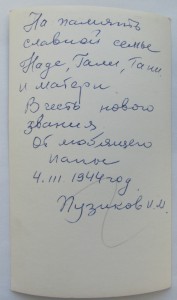 На память
славной семье
Наде, Гали, Тани
и матери.
В честь нового
звания
От любящего
папы
4.III 1944 год.
Пузиков И.И.